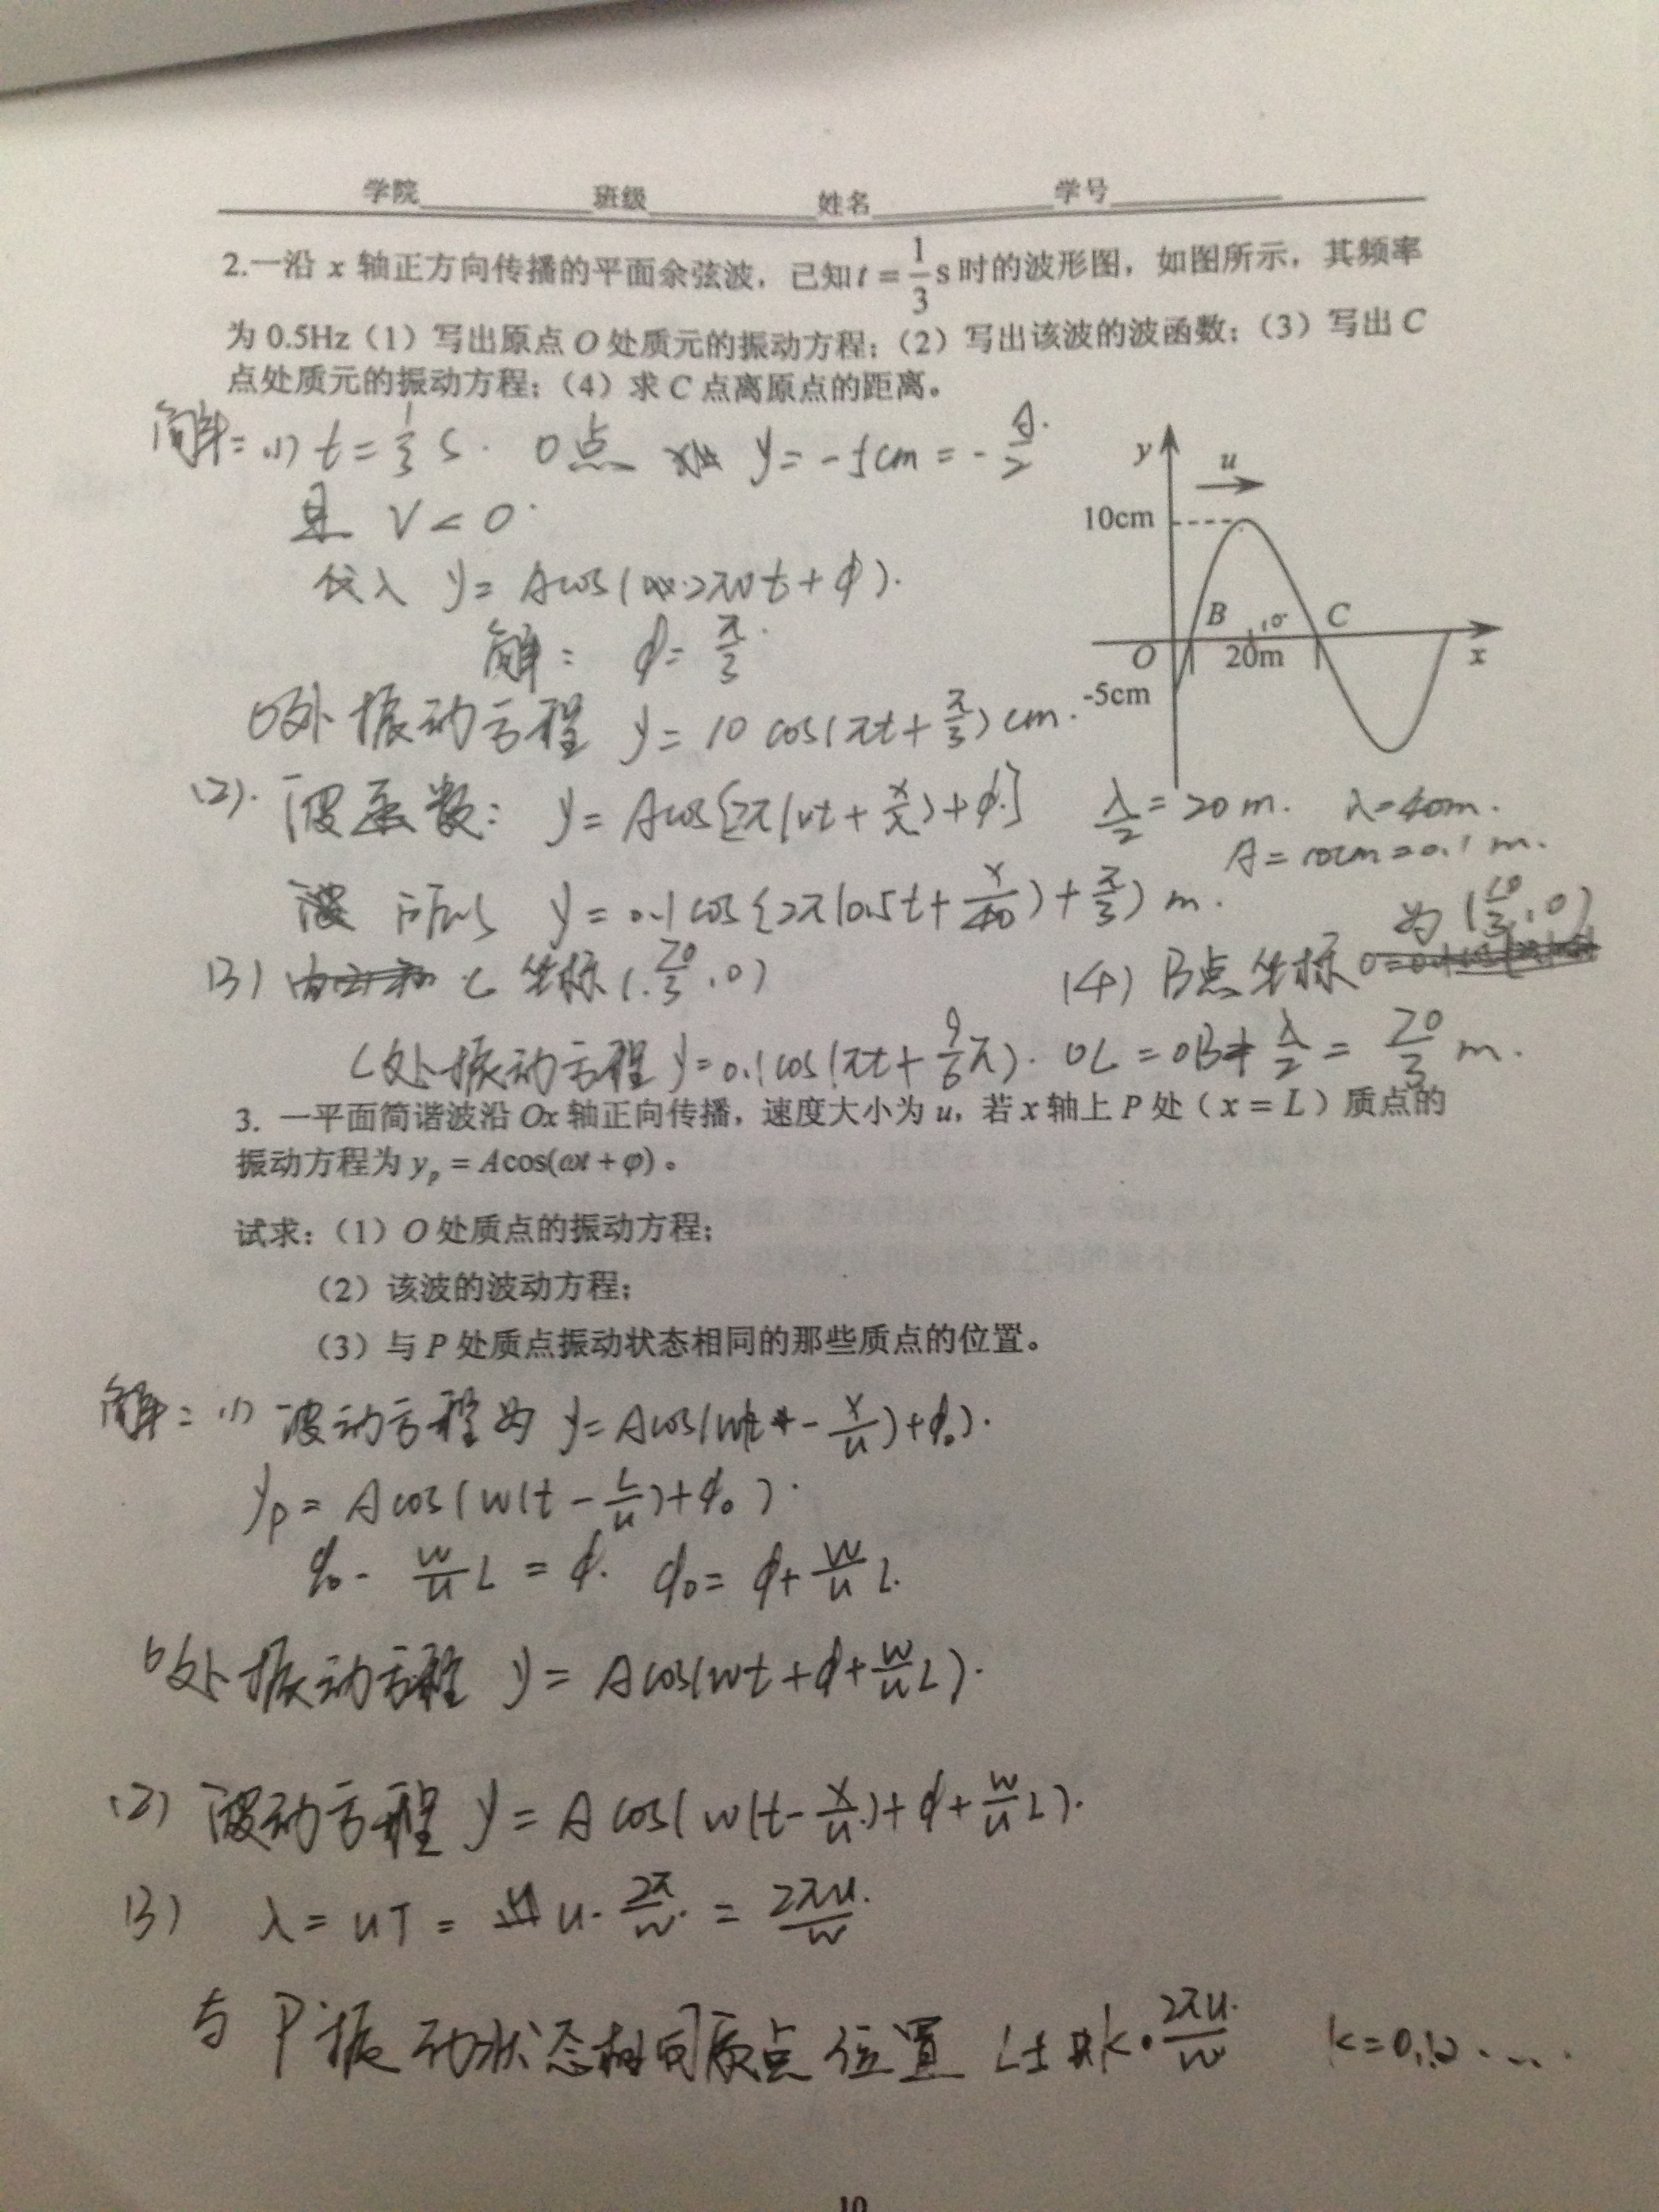 学院 班级 姓名 学号
2.一沿 x 轴正方向传播的平面余弦波，已知 t = 1/3 s 时的波形图，如图所示，其频率
为 0.5Hz（1）写出原点 O 处质元的振动方程；（2）写出该波的波函数；（3）写出 C
点处质元的振动方程；（4）求 C 点离原点的距离。
解: (1) t = 1/3 s. O点 y = -5cm = -A/2
且 V < 0.
代入 y = Acos(2πνt + φ).
解: φ = π/3.
O处振动方程 y = 10 cos(πt + π/3) cm.
y
u
10cm
B 10 C
O 20m x
-5cm
(2). 波函数: y = Acos[2π(νt + x/λ) + φ] λ/2 = 20 m. λ = 40m.
A = 10cm = 0.1 m.
所以 y = 0.1 cos[2π(0.5t + x/40) + π/3] m.
(3) C 坐标(20/3, 0)
(4) B点坐标 为 (20/3, 0)
C处振动方程 y = 0.1cos(πt + 9/6 π). OC = OB + λ/2 = 20/3 m.
3. 一平面简谐波沿 Ox 轴正向传播，速度大小为 u，若 x 轴上 P 处（x = L）质点的
振动方程为 yₚ = Acos(ωt + φ) 。
试求：（1）O 处质点的振动方程；
（2）该波的波动方程；
（3）与 P 处质点振动状态相同的那些质点的位置。
解: (1) 波动方程为 y = Acos(w(t - x/u) + φ₀).
yₚ = Acos(w(t - L/u) + φ₀).
φ₀ - w/u L = φ. φ₀ = φ + w/u L.
O处振动方程 y = Acos(wt + φ + w/u L).
(2) 波动方程 y = A cos(w(t - x/u) + φ + w/u L).
(3) λ = uT = u · 2π/w = 2πu/w
与 P 振动状态相同质点位置 L ± k · 2πu/w k = 0,1,2 ....
10